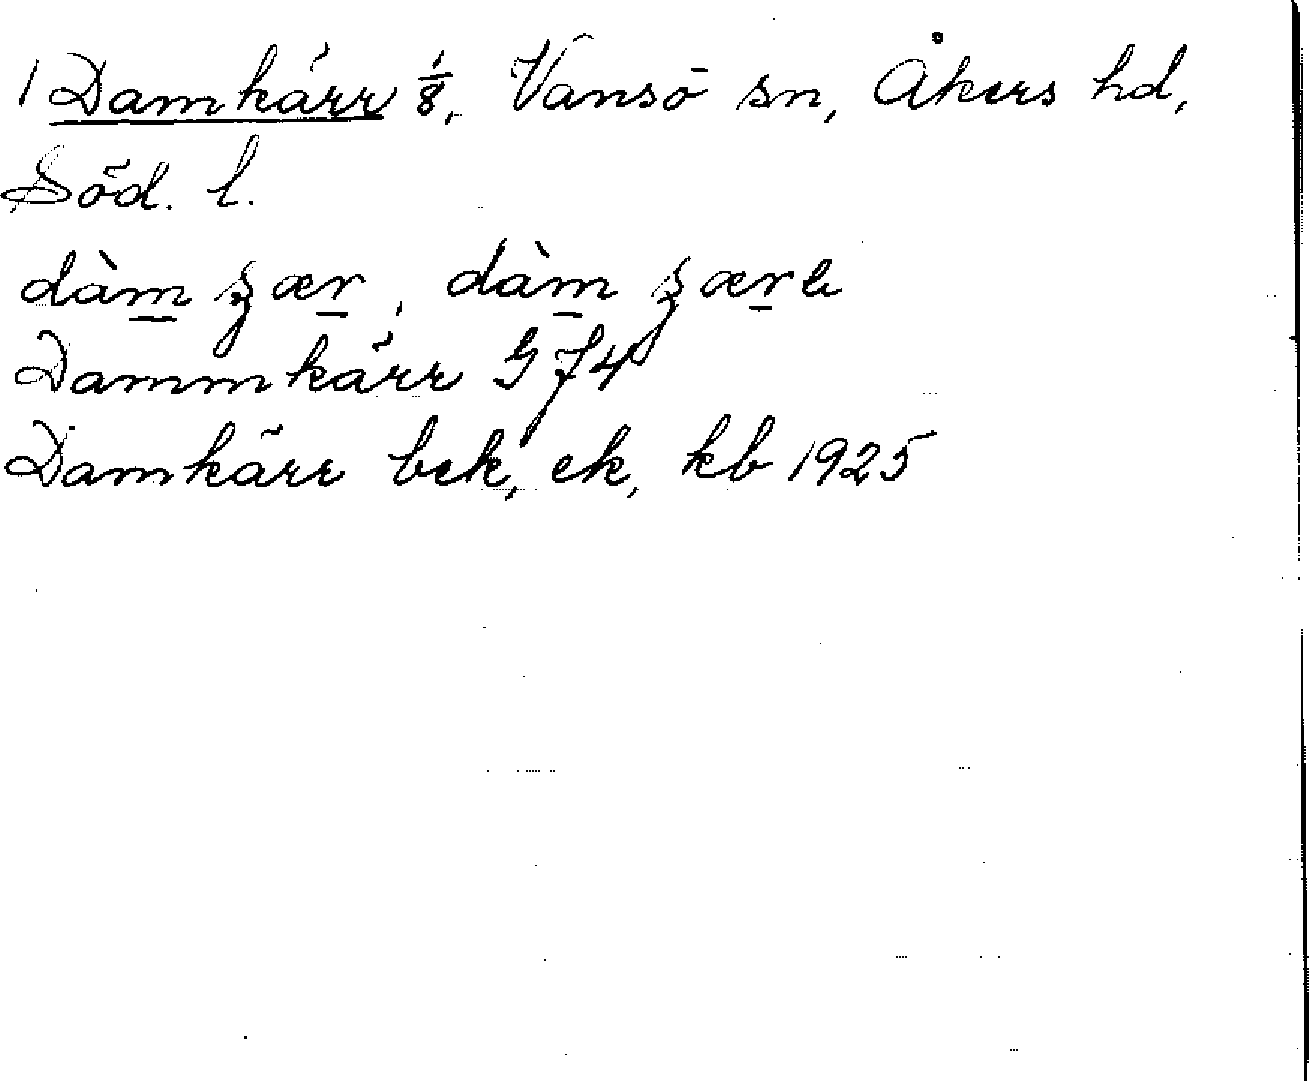 1 Damkärr 1/8, Vansö sn, Åkers hd,
Söd. l.
dàm̲ ʂær̲, dàm̲ ʂær̲e
Dammkärr G J 4
Damkärr bek, ek, kb 1925